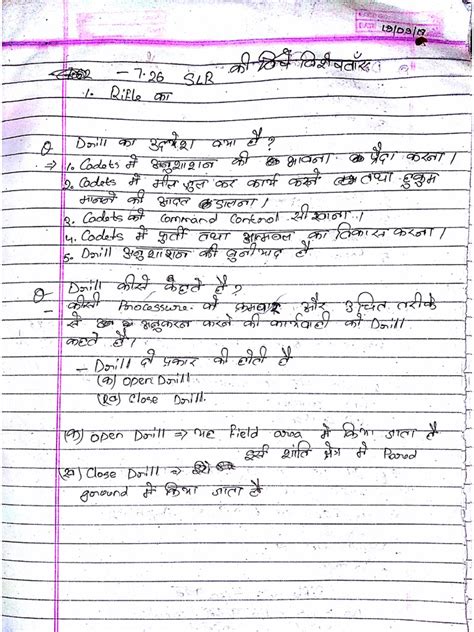 19/09/19
- 7.26 SLR की विर्षे विशेषताएँ
1. Rifle का
Q Drill का उद्देश्य क्या है?
⇒ 1. Cadets में अनुशाशन की भावना पैदा करना।
2. Cadets में मील जुल कर कार्य करने तथा हुकुम
मानने की आदत डालना।
3. Cadets को Command Control सीखाना।
4. Cadets में फुर्ती तथा आत्मबल का विकास करना।
5. Drill अनुशाशन की बुनीयाद है
Q- Drill कीसे कहाते है?
- कीसी Processure को क्रमवार और उचित तरीके
से अनुकरण करने की कार्यवाही को Drill
कहते है।
- Drill दो प्रकार की होती है
(क) Open Drill
(ख) Close Drill.
(क) Open Drill ⇒ यह Field area में किया जाता है
(ख) Close Drill ⇒ इसे शांति क्षेत्र में Pared
ground में किया जाता है